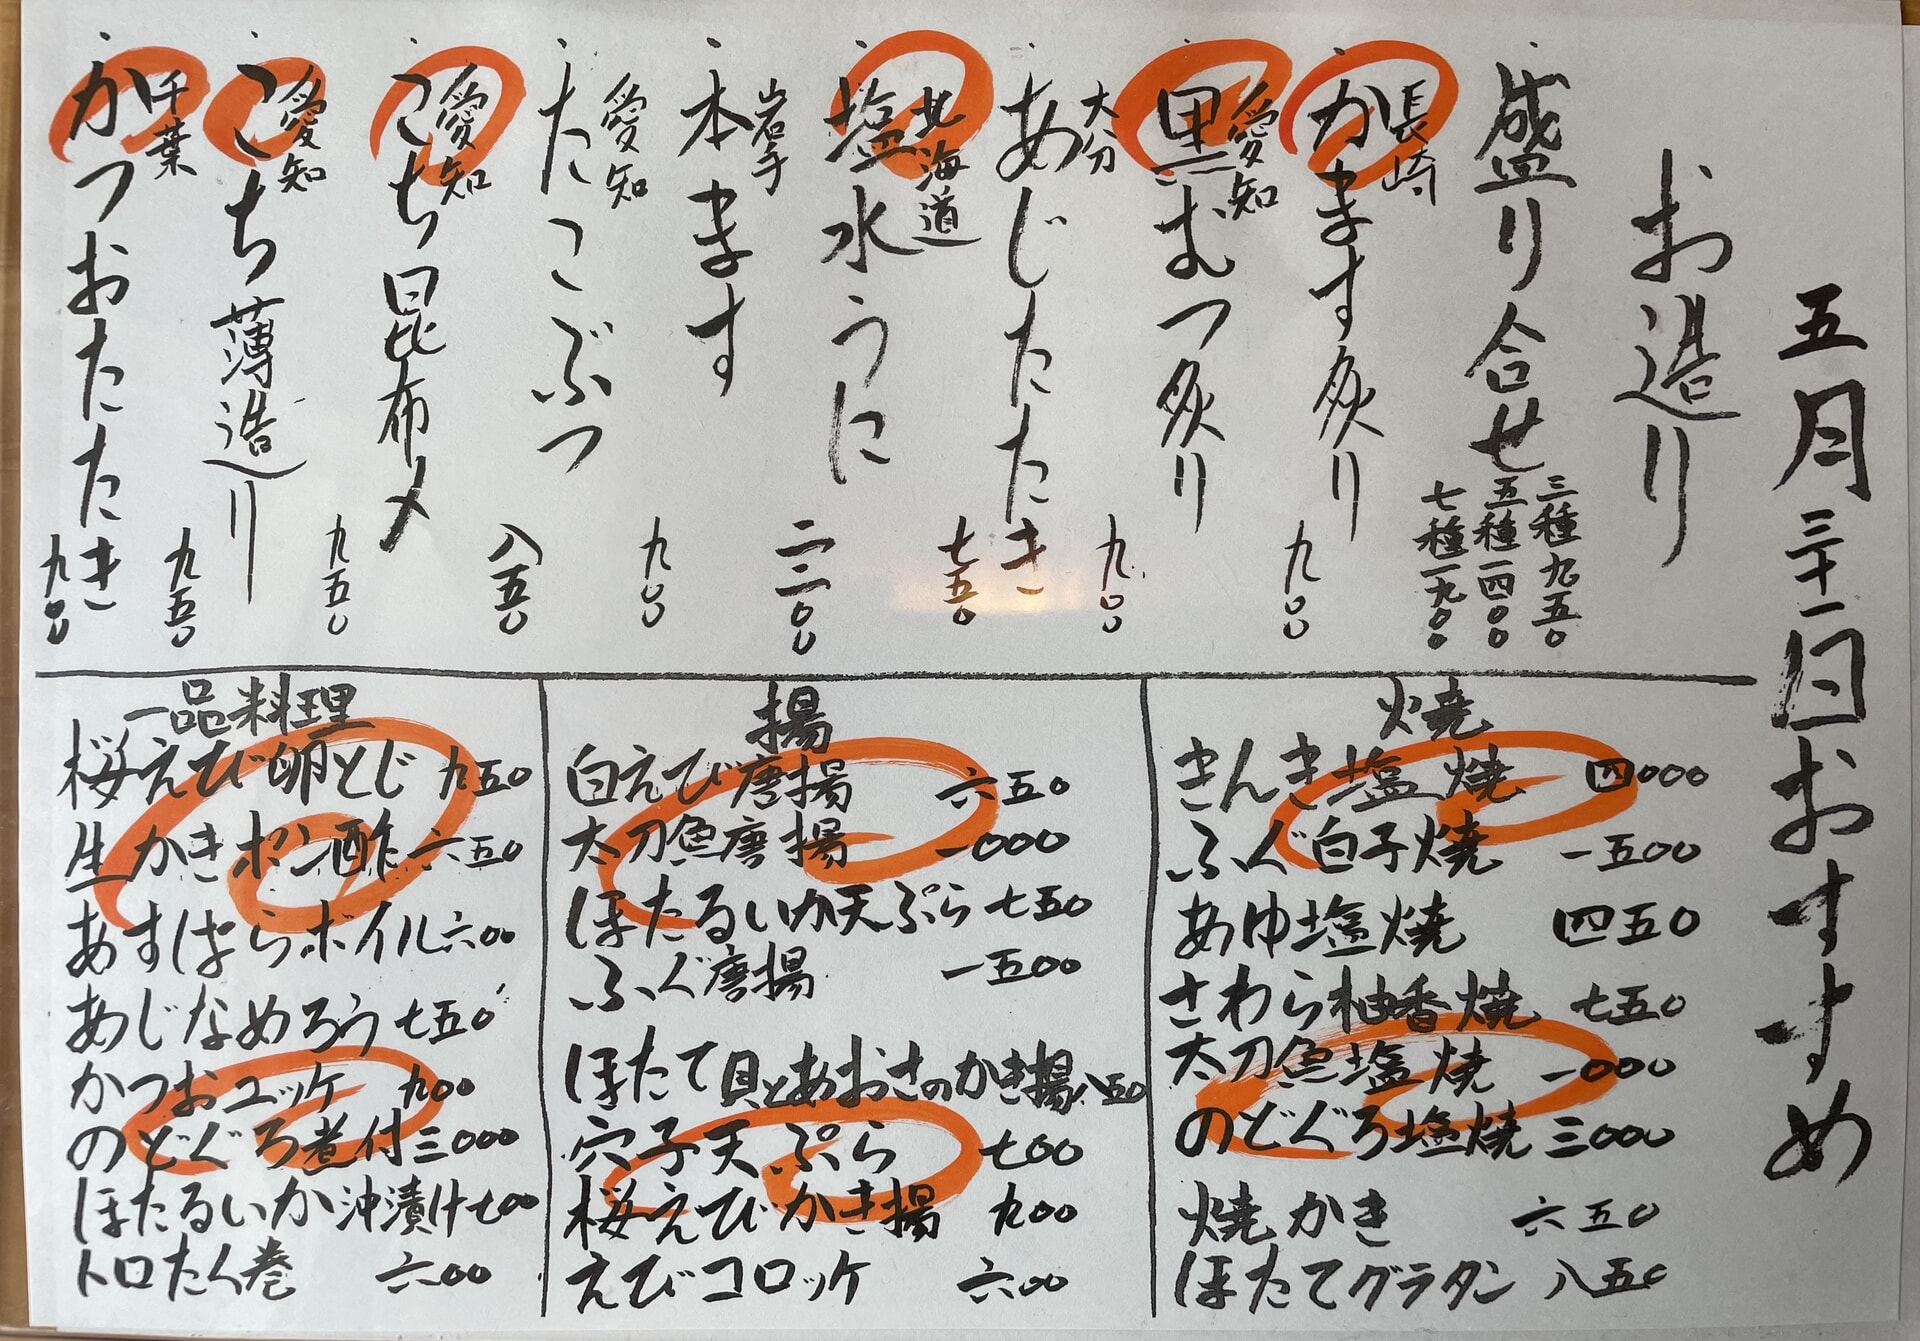 五月三十一日おすすめ
お造り
盛り合せ
三種九五〇
五種一四〇〇
七種一九〇〇
長崎
・かます炙り 九〇〇
愛知
・黒むつ炙り 九〇〇
大分
・あじたたき 七五〇
北海道
・塩水うに 二二〇〇
岩手
・本ます 九〇〇
愛知
・たこぶつ 八五〇
愛知
・こち昆布〆 九五〇
愛知
・こち薄造り 九五〇
千葉
・かつおたたき 九〇〇
焼
きんき塩焼 四〇〇〇
ふぐ白子焼 一五〇〇
あゆ塩焼 四五〇
さわら柚香焼 七五〇
太刀魚塩焼 一〇〇〇
のどぐろ塩焼 三〇〇〇
焼かき 六五〇
ほたてグラタン 八五〇
揚
白えび唐揚 六五〇
太刀魚唐揚 一〇〇〇
ほたるいか天ぷら 七五〇
ふぐ唐揚 一五〇〇
ほたて貝とあおさのかき揚 八五〇
穴子天ぷら 七〇〇
桜えびかき揚 九〇〇
えびコロッケ 六〇〇
一品料理
桜えび卵とじ 九五〇
生かきポン酢 六五〇
あすぱらボイル 六〇〇
あじなめろう 七五〇
かつおユッケ 九〇〇
のどぐろ煮付 三〇〇〇
ほたるいか沖漬け 七〇〇
トロたく巻 六〇〇